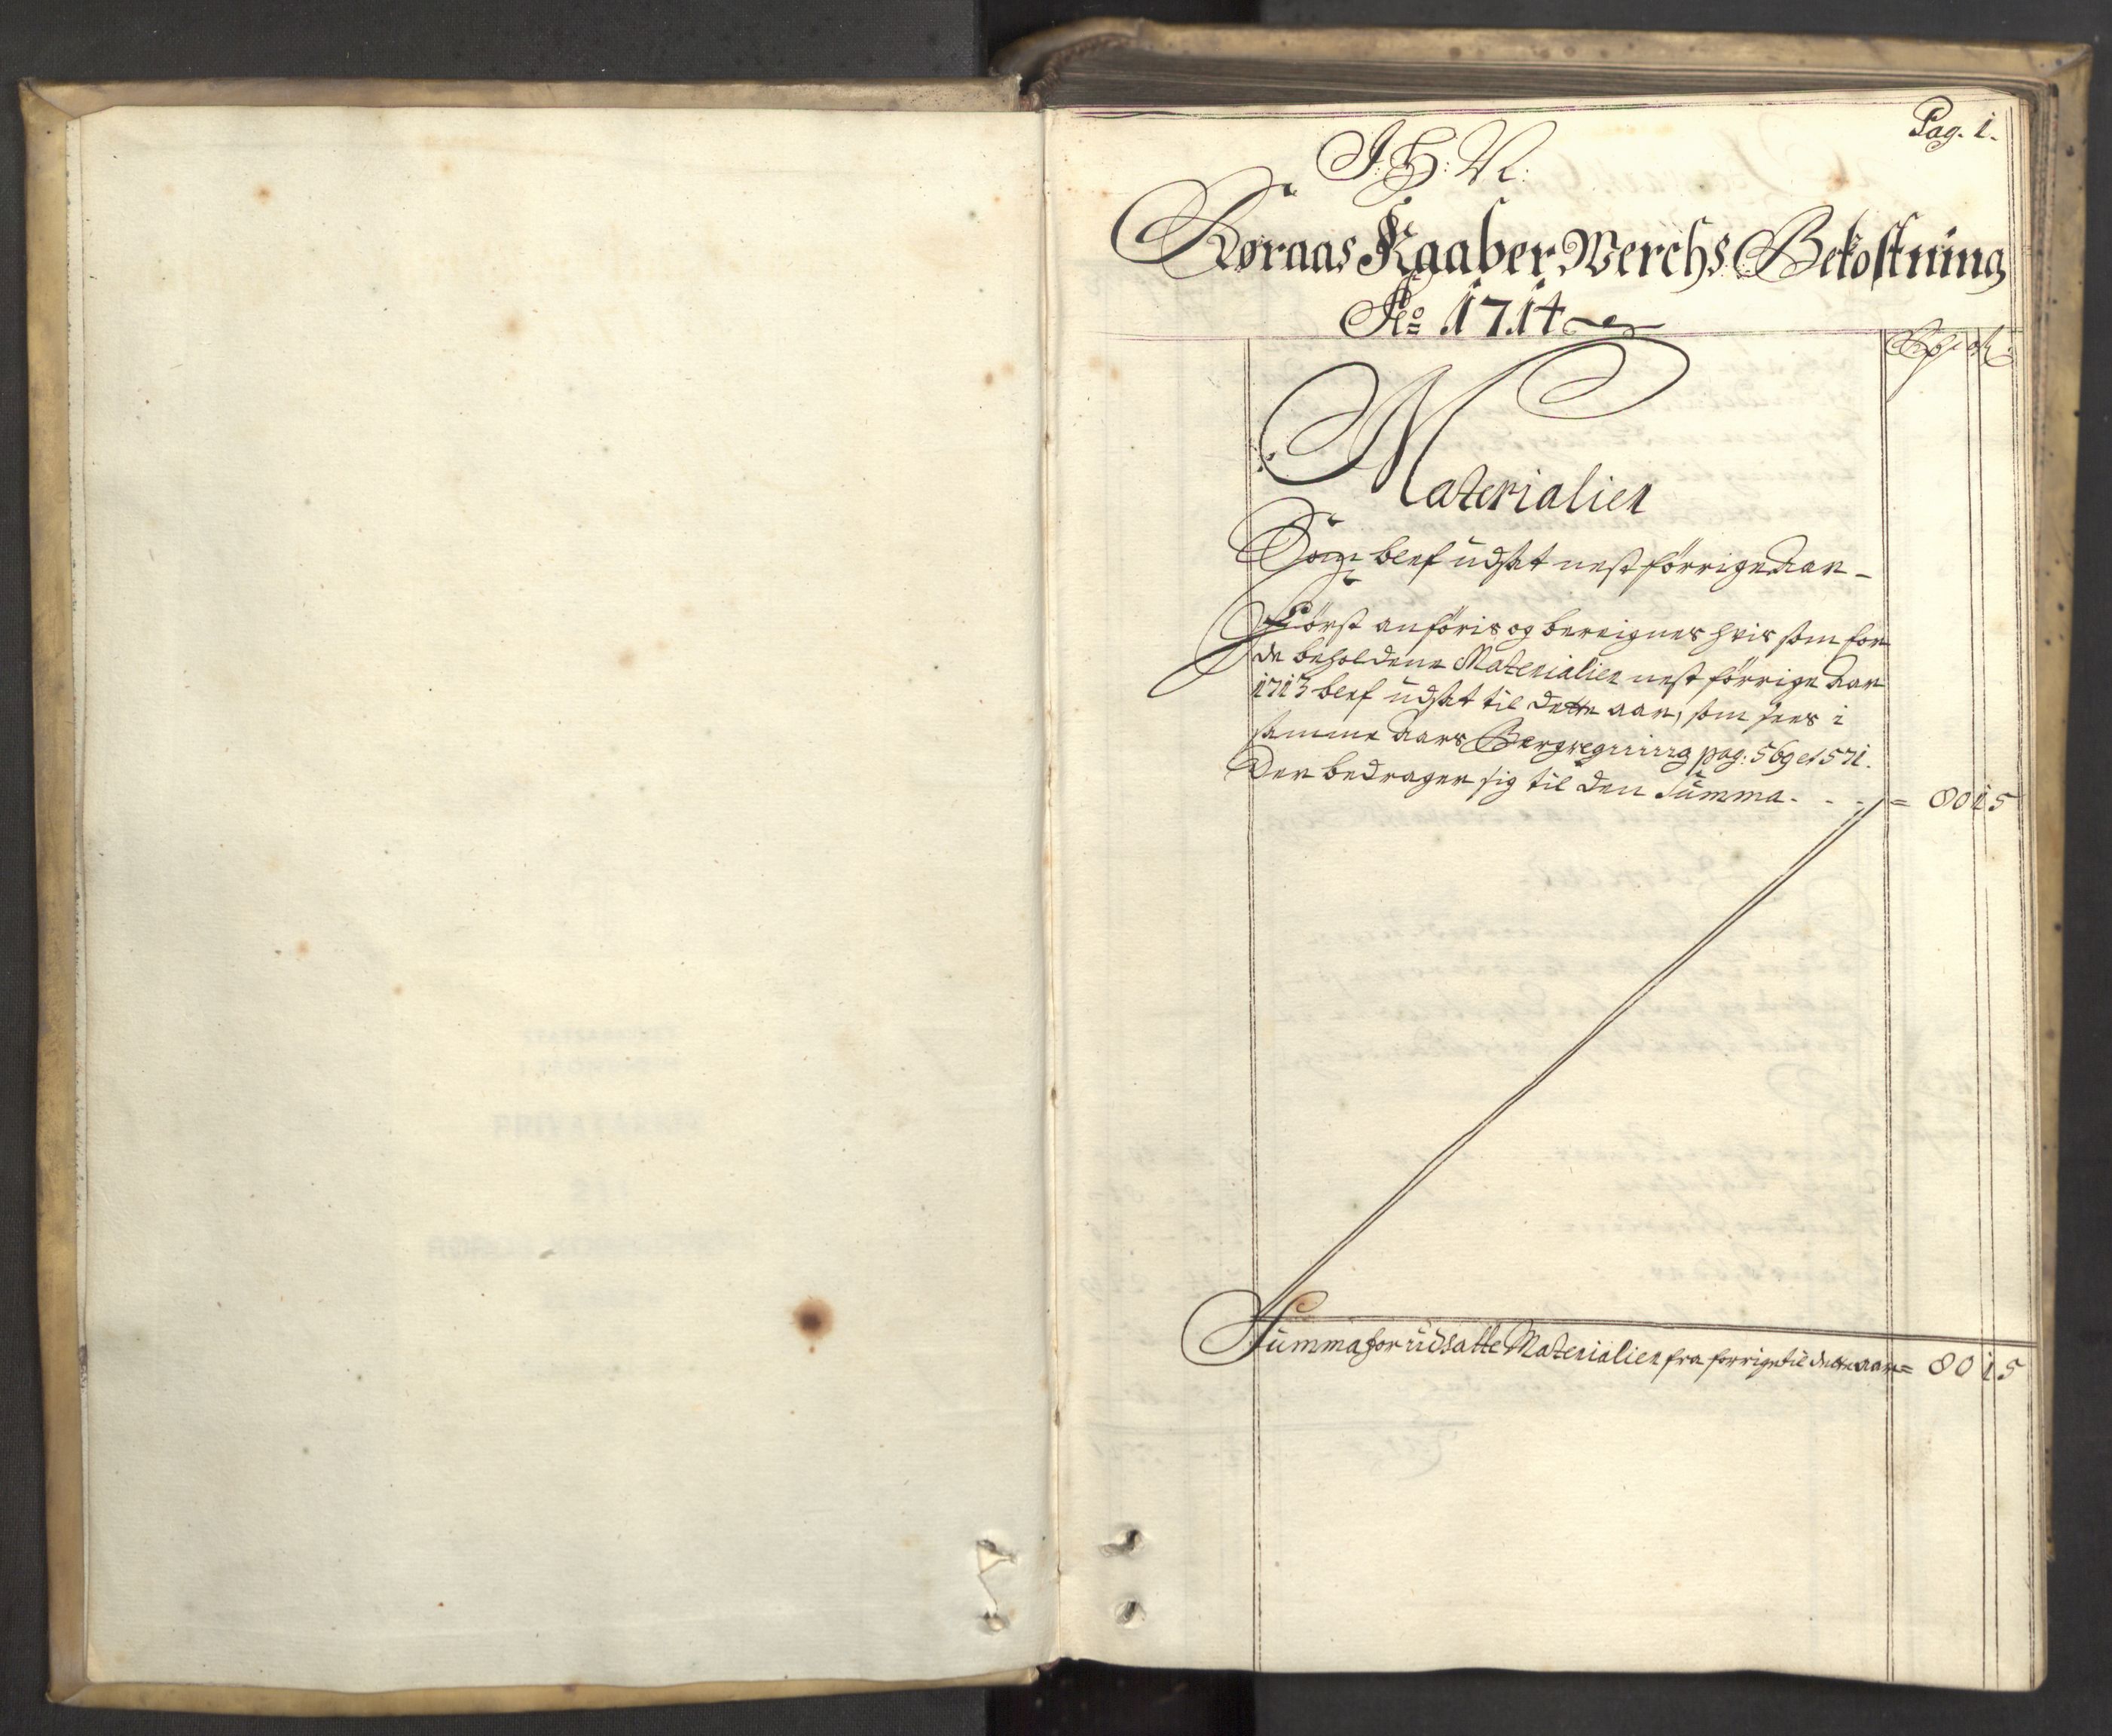 Pag. 1.
J: H: N:
Røraas Kaaber Werchs Bekostning
Ao 1714
Materialier
Som blef üdsat nest förrige Aar -
Först anföris og bereignes hvis som for
de beholdene Materialier nest förrige Aar
1713 blef üdsat til dette aar, som sees i
samme Aars Bergregning pag: 569 et 571.
Der bedrager sig til den Summa - - - = 8015
Summa for üdsatte Materialier fra forrige til dette aar = 8015